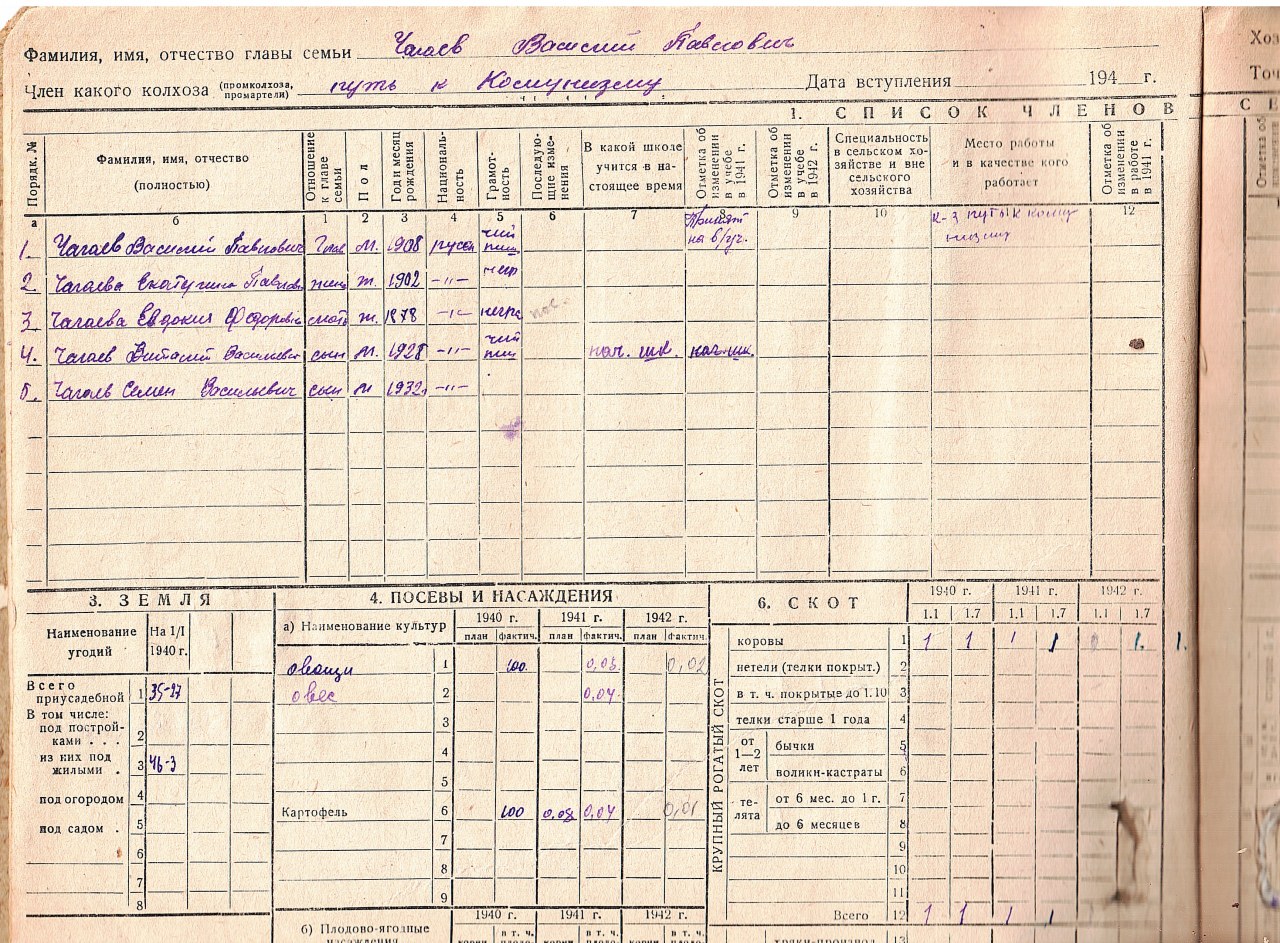 Фамилия, имя, отчество главы семьи Чагаев Василий Павлович
Хоз
Член какого колхоза (промколхоза, промартели) путь к Комунизму Дата вступления 194 г.
Точ
1. СПИСОК ЧЛЕНОВ
Порядк. №
Фамилия, имя, отчество
(полностью)
Отношение к главе семьи
Пол
Год и месяц рождения
Националь-
ность
Грамот-
ность
Последую-
щие изме-
нения
В какой школе
учится в на-
стоящее время
Отметка об изменении в учебе в 1941 г.
Отметка об изменении в учебе в 1942 г.
Специальность
в сельском хо-
зяйстве и вне
сельского
хозяйства
Место работы
и в качестве кого
работает
Отметка об изменении в работе в 1941 г.
а б 1 2 3 4 5 6 7 8 9 10 12
1. Чагаев Василий Павлович Глав м. 1908 русск к-з путь к кому-
низму
2. Чагаева Екатерина жена ж. 1902 -"- негр
3. Чагаева Евдокия мать ж. 1878 -"- негр
4. Чагаев Виталий Васильевич сын м. 1928 -"- нач. шк. нач. шк.
5. Чагаев Семен Васильевич сын м 1932 -"-
3. ЗЕМЛЯ
Наименование
угодий
На 1/I
1940 г.
Всего
приусадебной 1 35-27
В том числе:
под построй-
ками . . . 2
из них под
жилыми . 3 46-3
под огородом 4
под садом . 5
6
7
8
4. ПОСЕВЫ И НАСАЖДЕНИЯ
а) Наименование культур 1940 г. 1941 г. 1942 г.
план фактич. план фактич. план фактич.
овощи 1 100 0,03 0,02
овес 2 0,04
3
4
5
Картофель 6 100 0,08 0,04 0,01
7
8
9
1940 г. 1941 г. 1942 г.
б) Плодово-ягодные
насаждения
в т. ч. в т. ч. в т. ч.
6. СКОТ
1940 г. 1941 г. 1942 г.
1.1 1.7 1.1 1.7 1.1 1.7
КРУПНЫЙ РОГАТЫЙ СКОТ
коровы 1 1 1 1 1 0 1. 1.
нетели (телки покрыт.) 2
в т. ч. покрытые до 1.10 3
телки старше 1 года 4
от
1—2
лет
бычки 5
волики-кастраты 6
те-
лята
от 6 мес. до 1 г. 7
до 6 месяцев 8
9
10
11
Всего 12 1 1 1 1
13